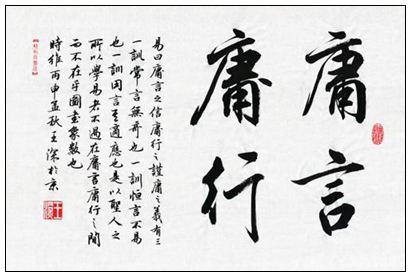 庸言
庸行
易曰庸言之信庸行之謹庸之義有三
一訓常言無奇也一訓恒言不易
也一訓用言其適應也是以聖人之
所以學易者不過在庸言庸行之間
而不在乎圖書象數也
時維丙申孟秋王深於京